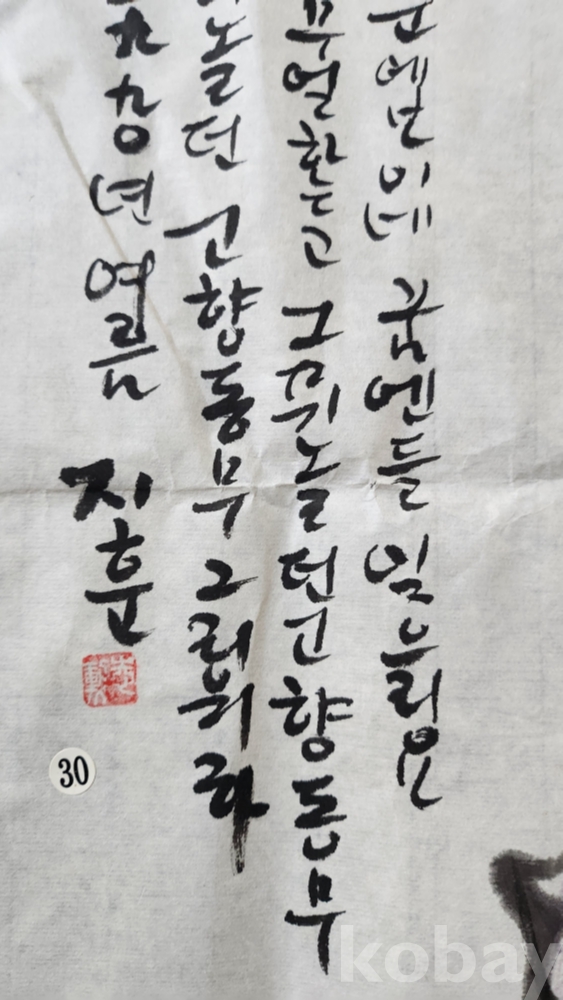 눈에 보이네 꿈엔들 잊으리요
무얼 하는고 그 뛰놀던 고향동무
놀던 고향동무 그리워라
九九○년 여름 지훈
30
kobay